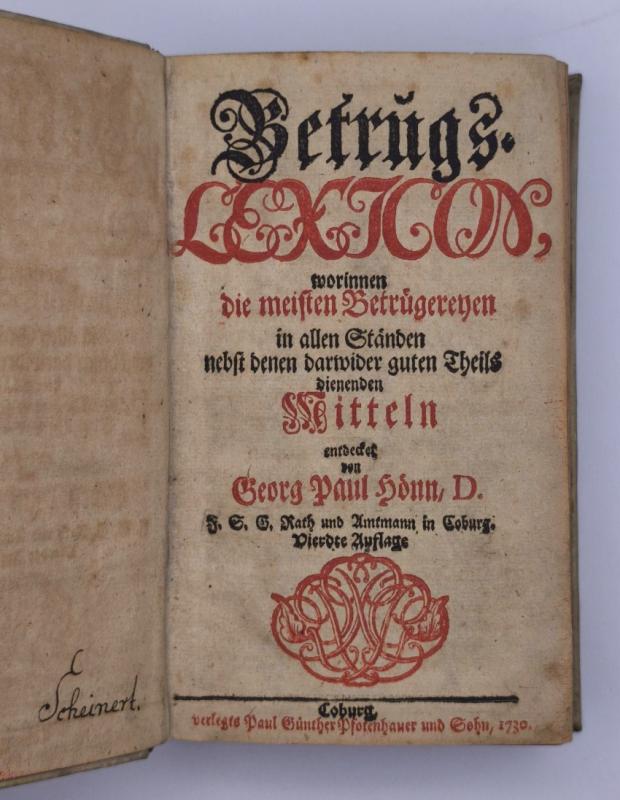 Betrŭgs-
LEXICON,
worinnen
die meisten Betrügereyen
in allen Ständen
nebst denen darwider guten Theils
dienenden
Mitteln
entdecket
von
Georg Paul Hönn, D.
F. S. G. Rath und Amtmann in Coburg.
Vierdte Auflage
Coburg,
verlegts Paul Günther Pfotenhauer und Sohn, 1730.
Scheinert.